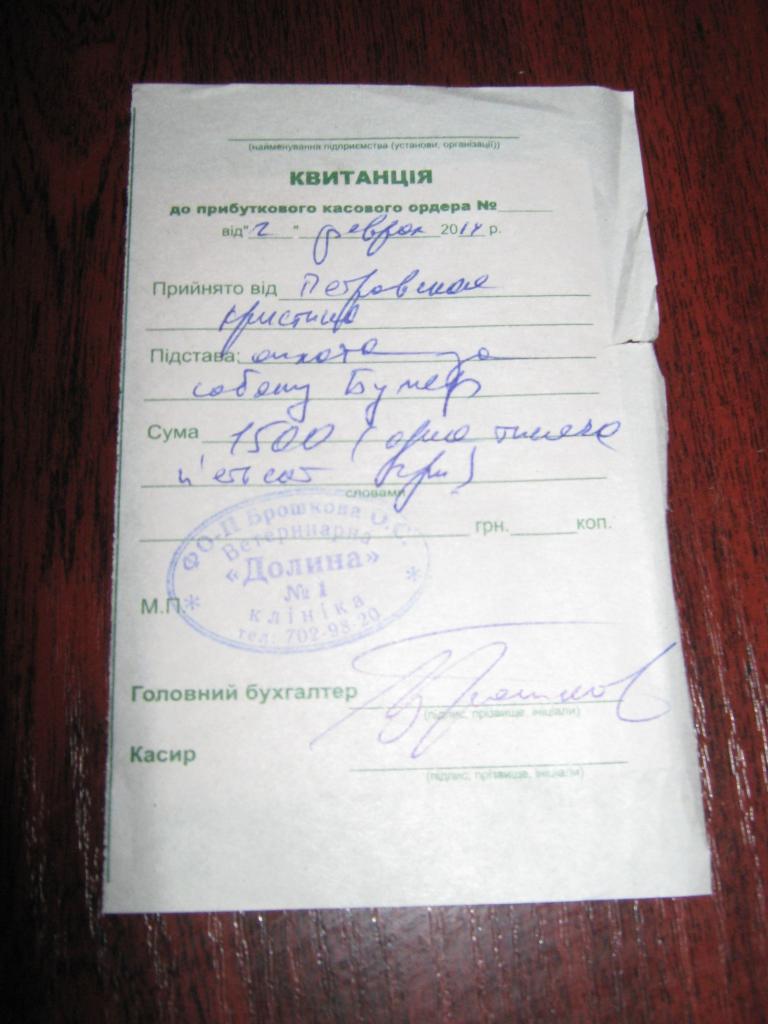 (найменування підприємства (установи, організації))
КВИТАНЦІЯ
до прибуткового касового ордера №
від "2" феврал 2014 р.
Прийнято від Петровская
Кристина
Підстава: оплата за
собаку Бумер
Сума 1500 (одна тисяча
п'ятсот грн)
словами
грн. коп.
ФО-П Брошкова О.С.
Ветеринарна
«Долина»
№ 1
клініка
тел: 702-98-20
М.П.
Головний бухгалтер
(підпис, прізвище, ініціали)
Касир
(підпис, прізвище, ініціали)